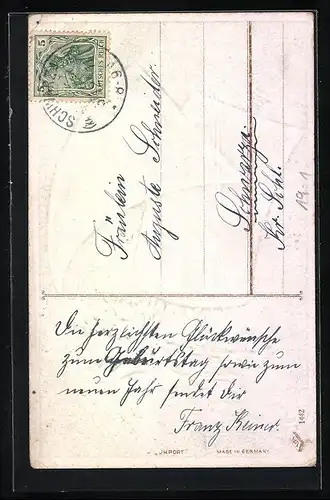 5
DEUTSCHES REICH
Fräulein
Auguste Schneider
Schwarza
Kr. Schl.
Die herzlichsten Glückwünsche
zum Geburtstag sowie zum
neuen Jahr sendet Dir
Franz Keiner.
1482
MADE IN GERMANY